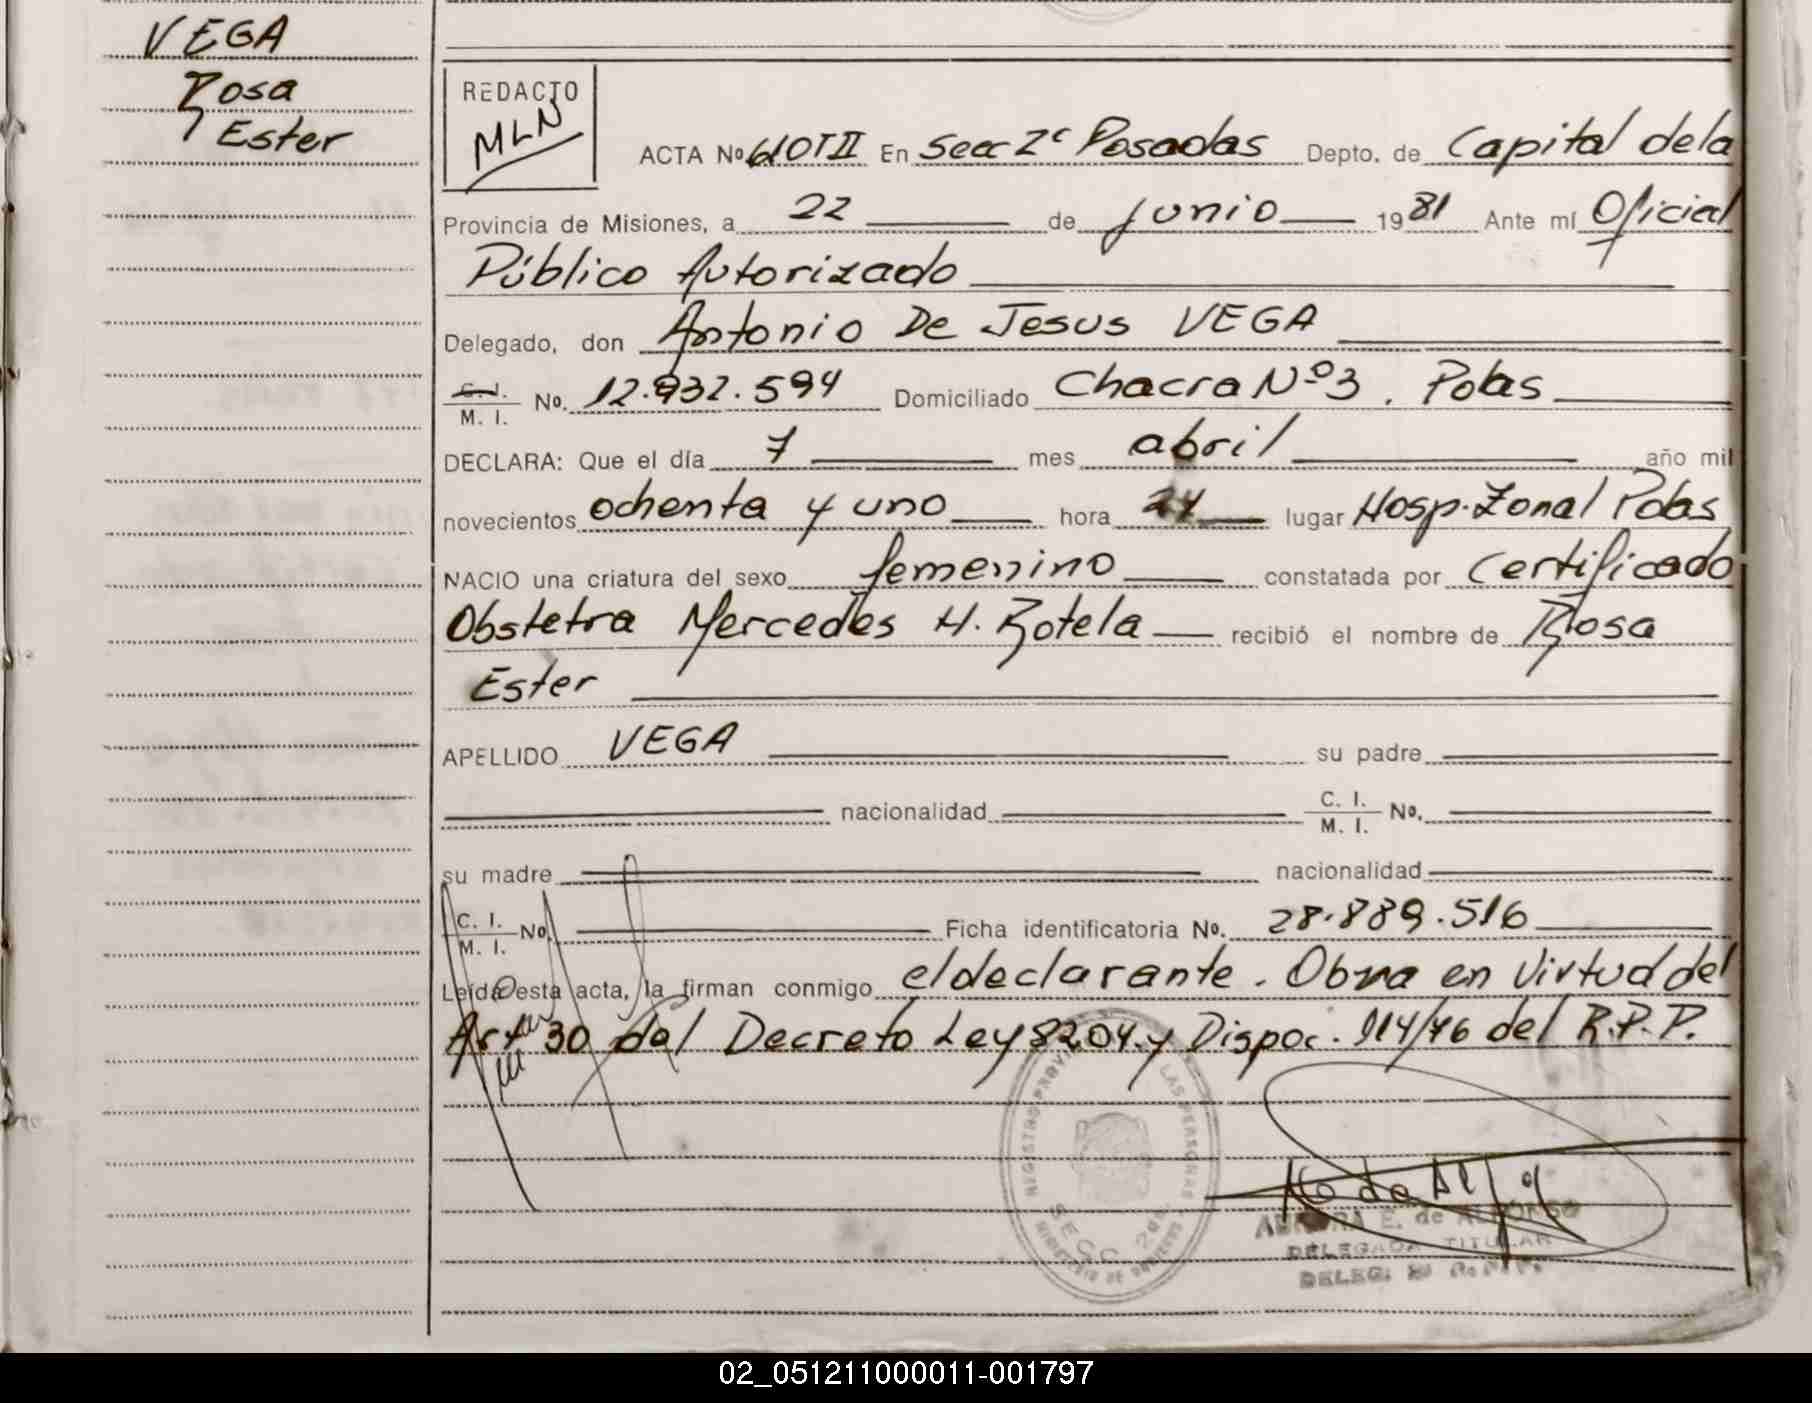 VEGA
Rosa
Ester
REDACTO
MLN
ACTA No 610TII En Secc 2ª Posadas Depto. de Capital de la
Provincia de Misiones, a 22 de junio 1981 Ante mí Oficial
Público Autorizado
Delegado, don Antonio De Jesus VEGA
C. I.
M. I.
No. 12.932.594 Domiciliado Chacra Nº3. Pdas
DECLARA: Que el día 7 mes abril año mil
novecientos ochenta y uno hora 24 lugar Hosp. Zonal Pdas
NACIO una criatura del sexo femenino constatada por Certificado
Obstetra Mercedes H. Rotela recibió el nombre de Rosa
Ester
APELLIDO VEGA su padre
nacionalidad C. I.
M. I.
No.
su madre nacionalidad
C. I.
M. I.
No. Ficha identificatoria No. 28.889.516
Leída esta acta, la firman conmigo el declarante. Obra en virtud del
Art 30 del Decreto Ley 8204. y Dispoc. 114/76 del R.P.P.
REGISTRO PROV. LAS PERSONAS
SECC. 2da.
MINISTERIO DE
AURORA E. de ALFONSO
DELEGADA TITULAR
DELEG. R.P.P.
02_051211000011-001797